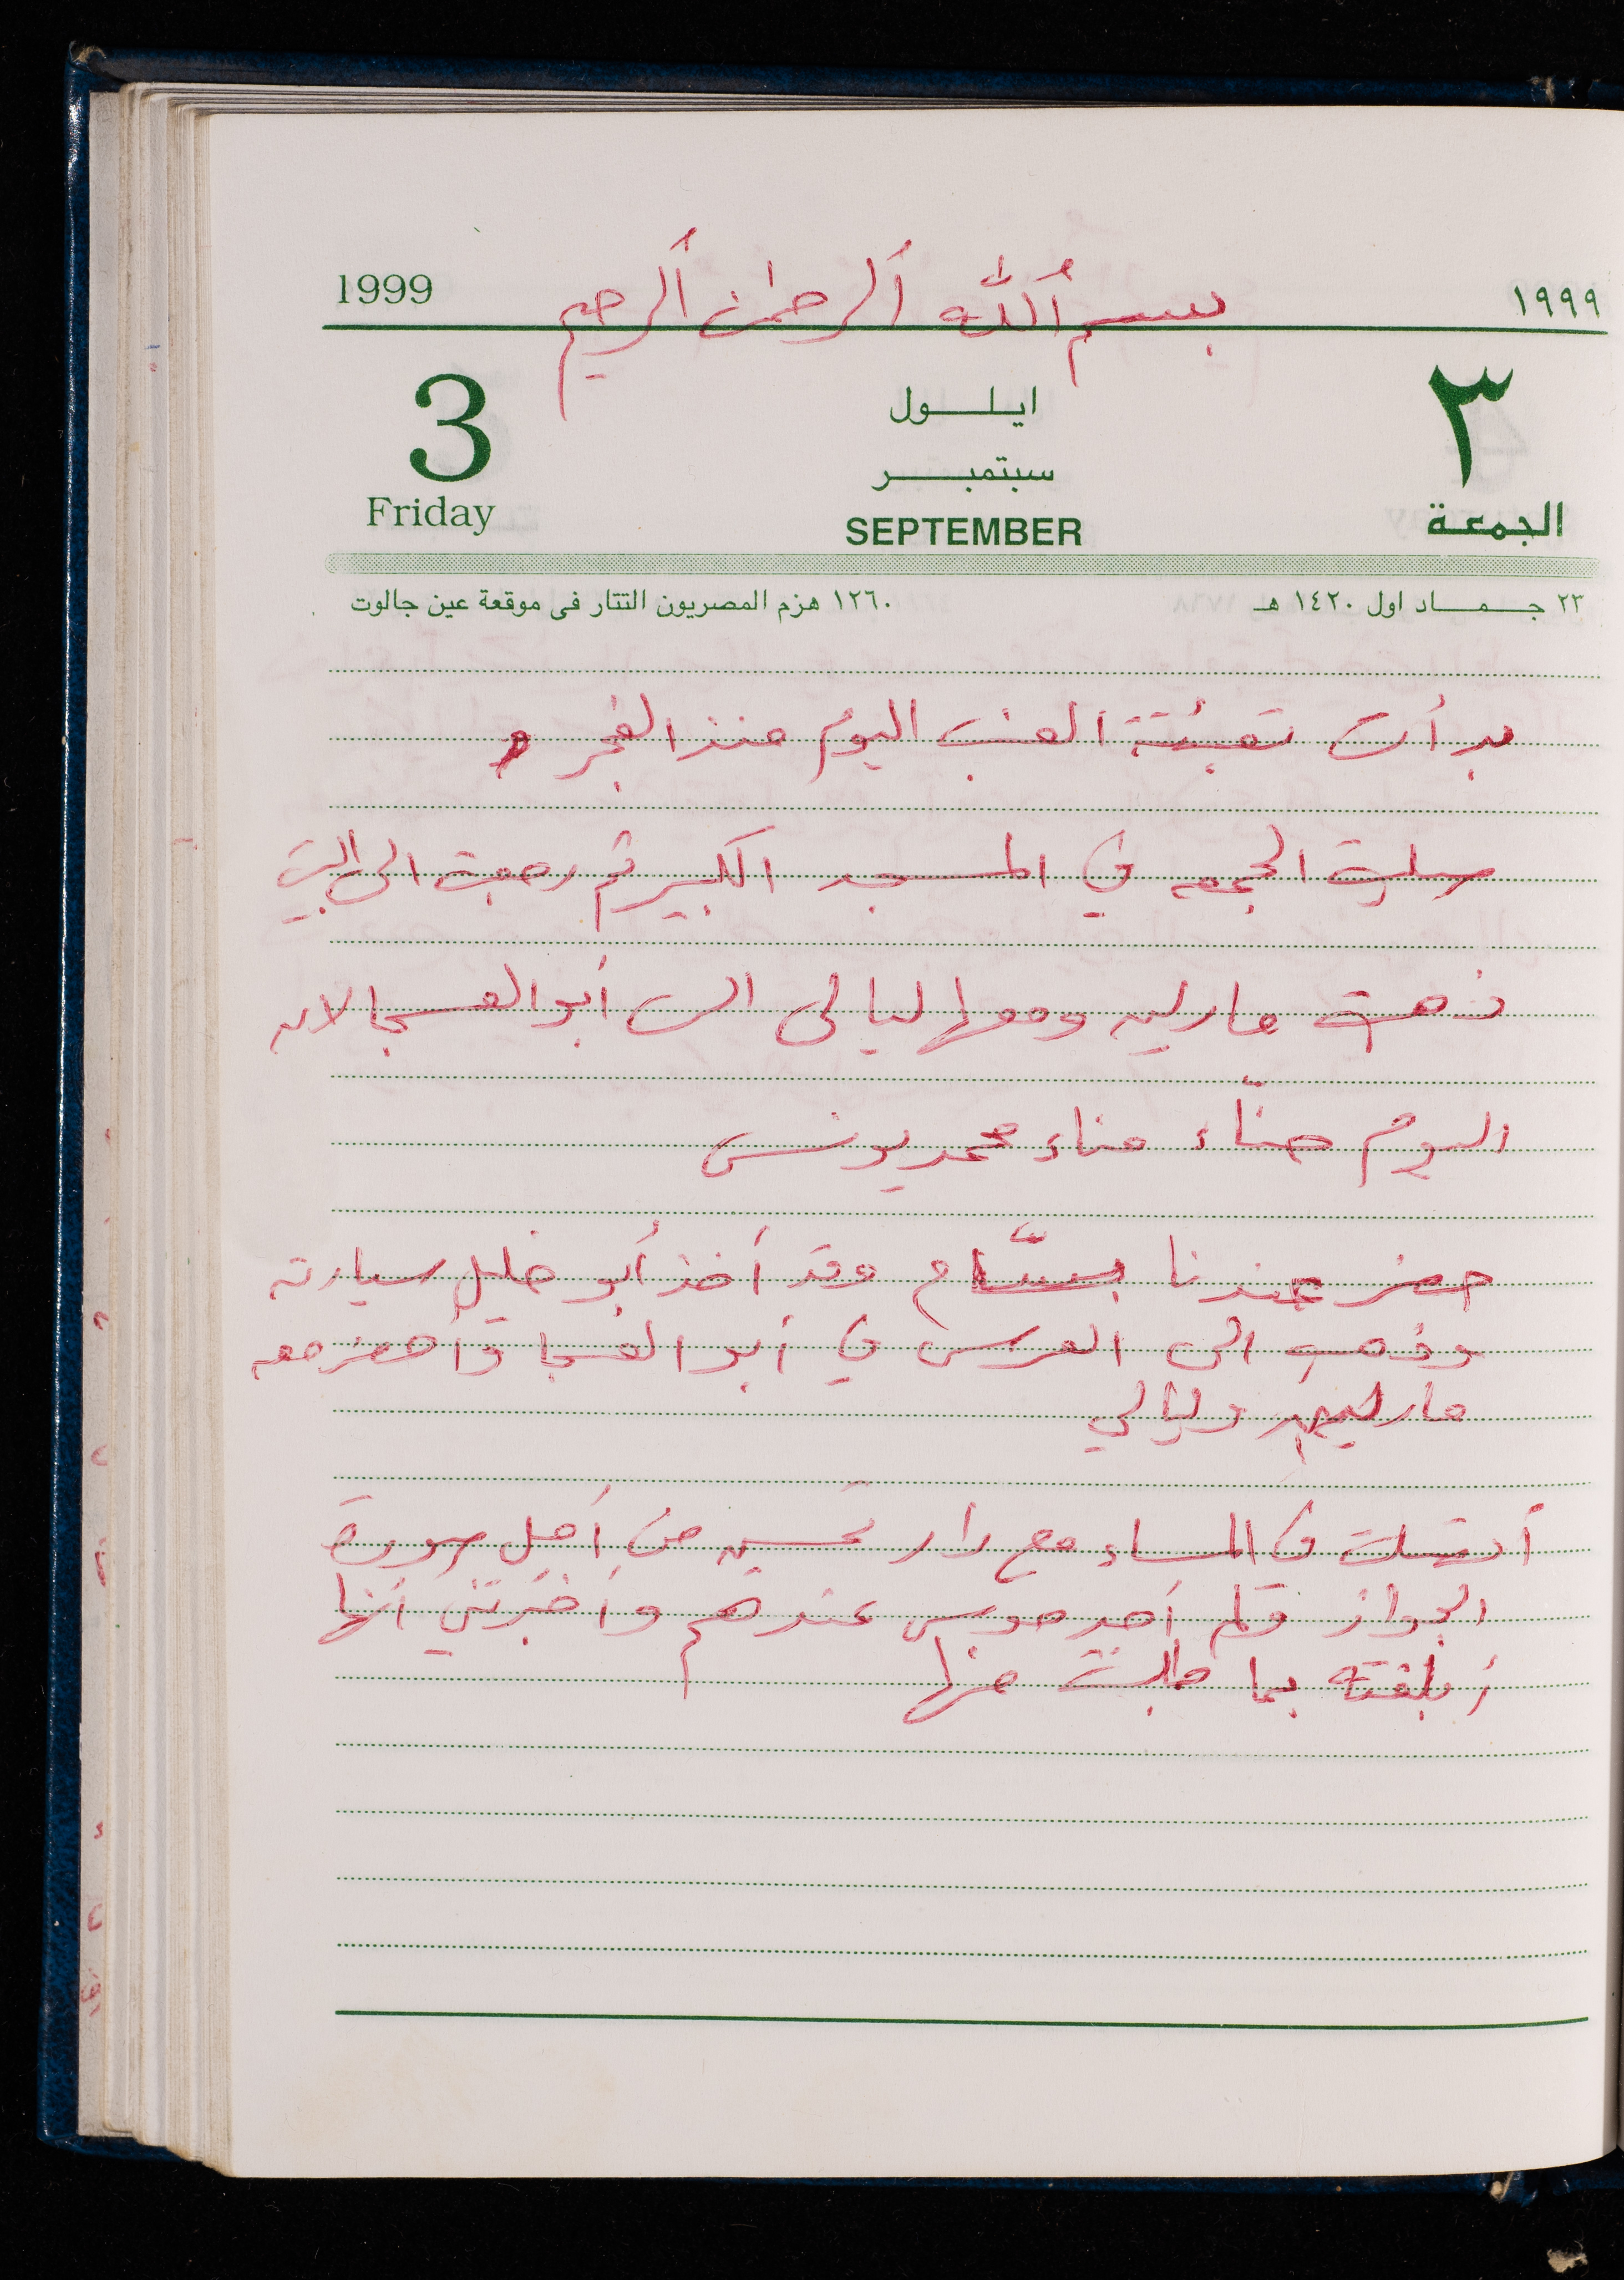 بسم الله الرحمن الرحيم
1999 ١٩٩٩
3 ايلول ٣
سبتمبر
Friday SEPTEMBER الجمعة
٢٣ جماد اول ١٤٢٠ هـ ١٢٦٠ هزم المصريون التتار فى موقعة عين جالوت
بدأت تعبئة العنب اليوم منذ الفجر
صليت الجمعه في المسجد الكبير ثم رجعت الى البيت
ذهبت مارلين ومعها ليالى الى أبو العسجا لان
اليوم حنّاء هناء محمد يونس
حضر عندنا بسّام وقد أخذ أبو خليل سيارته
وذهب الى العرس في أبو العسجا وأحضر معه
مارلين وليالي
أتصلت في المساء مع دار تحسين من أجل صورة
الجواز فلم أجد موسى عندهم وأخبرتني أنها
أبلغته بما طلبت منها